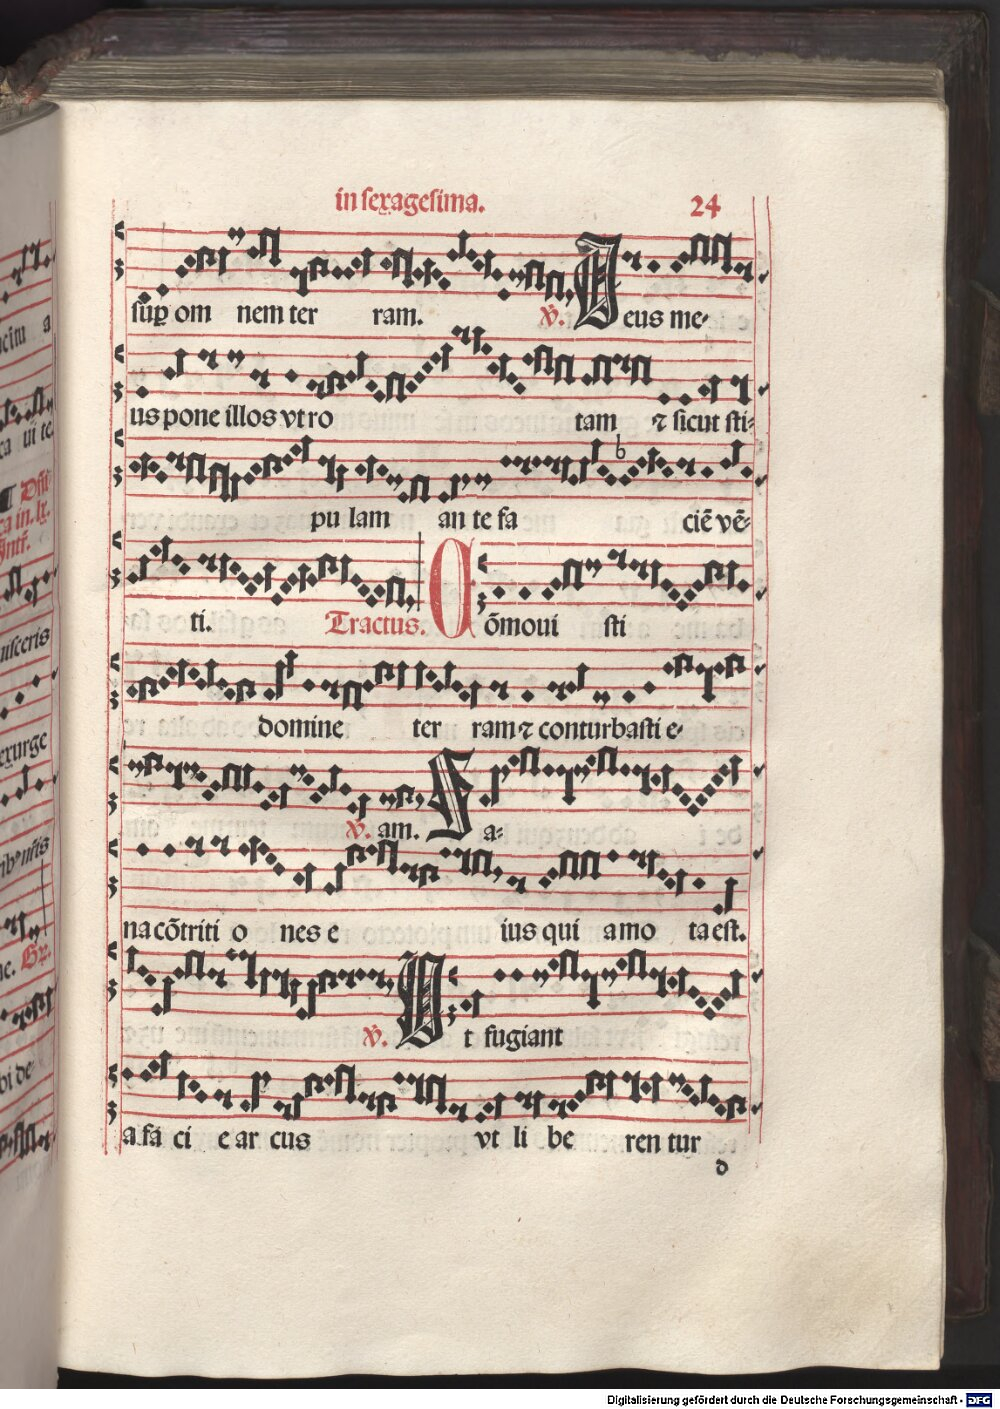 in sexagesima. 24
sup̱ om nem ter ram. ℣. Deus me-
us pone illos vt ro tam ⁊ sicut sti-
pu lam an te fa ciē vē-
ti. Tractus. Cōmoui sti
domine ter ram ⁊ conturbasti e-
℣. am. Sa-
na cōtriti o nes e ius qui a mo ta est.
℣. Vt fugiant
a fa ci e ar cus vt li be ren tur
d
Digitalisierung gefördert durch die Deutsche Forschungsgemeinschaft - DFG